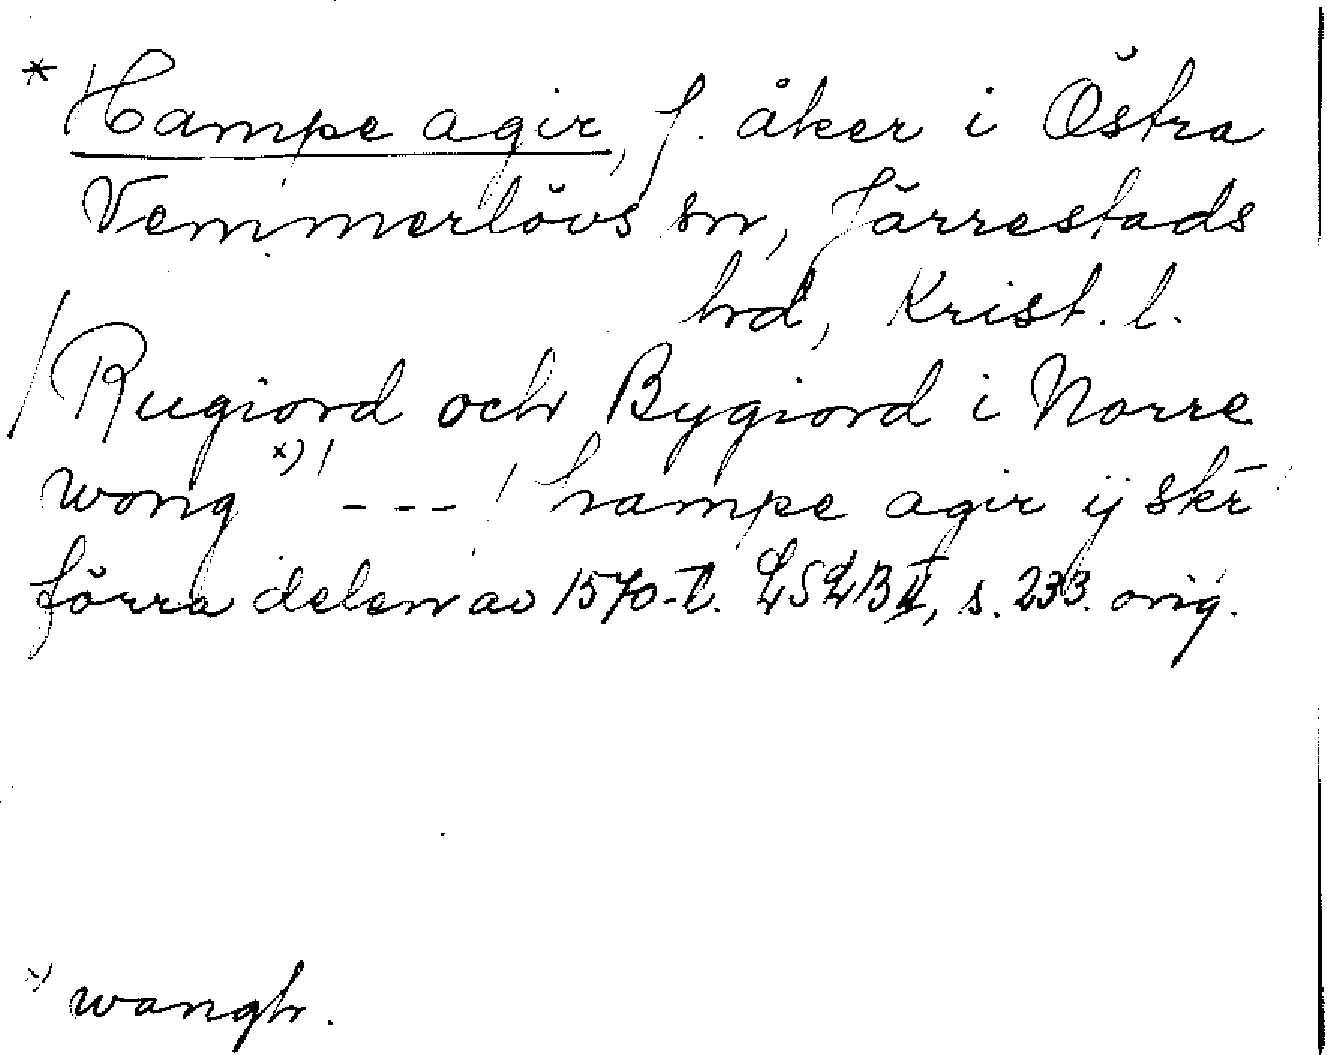 * Hampe agir, f. åker i Östra
Vemmerlövs sn, Järrestads
hd, Krist. l.
/Rugiord och Bygiord i Norre
wong x) / --- / hampe agir ij skr̄
förra delen av 1570-t. LSLB V, s. 233. orig.
x) wangh.